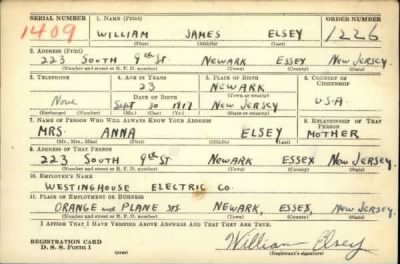 SERIAL NUMBER 1. NAME (Print) ORDER NUMBER
1409 WILLIAM JAMES ELSEY 1226
(First) (Middle) (Last)
2. ADDRESS (Print)
223 SOUTH 9th St. NEWARK ESSEX NEW JERSEY.
(Number and street or R. F. D. number) (Town) (County) (State)
3. TELEPHONE 4. AGE IN YEARS 5. PLACE OF BIRTH 6. COUNTRY OF CITIZENSHIP
23 NEWARK
None DATE OF BIRTH (Town or county) U.S.A.
Sept 30 1917 NEW JERSEY
(Exchange) (Number) (Mo.) (Day) (Yr.) (State or country)
7. NAME OF PERSON WHO WILL ALWAYS KNOW YOUR ADDRESS 8. RELATIONSHIP OF THAT PERSON
MRS. ANNA ELSEY MOTHER
(Mr., Mrs., Miss) (First) (Middle) (Last)
9. ADDRESS OF THAT PERSON
223 SOUTH 9th St. NEWARK ESSEX NEW JERSEY.
(Number and street or R. F. D. number) (Town) (County) (State)
10. EMPLOYER'S NAME
WESTINGHOUSE ELECTRIC CO.
11. PLACE OF EMPLOYMENT OR BUSINESS
ORANGE AND PLANE STS. NEWARK, ESSEX, NEW JERSEY.
(Number and street or R. F. D. number) (Town) (County) (State)
I AFFIRM THAT I HAVE VERIFIED ABOVE ANSWERS AND THAT THEY ARE TRUE.
William Elsey
REGISTRATION CARD
D. S. S. Form 1 (over) (Registrant's signature)